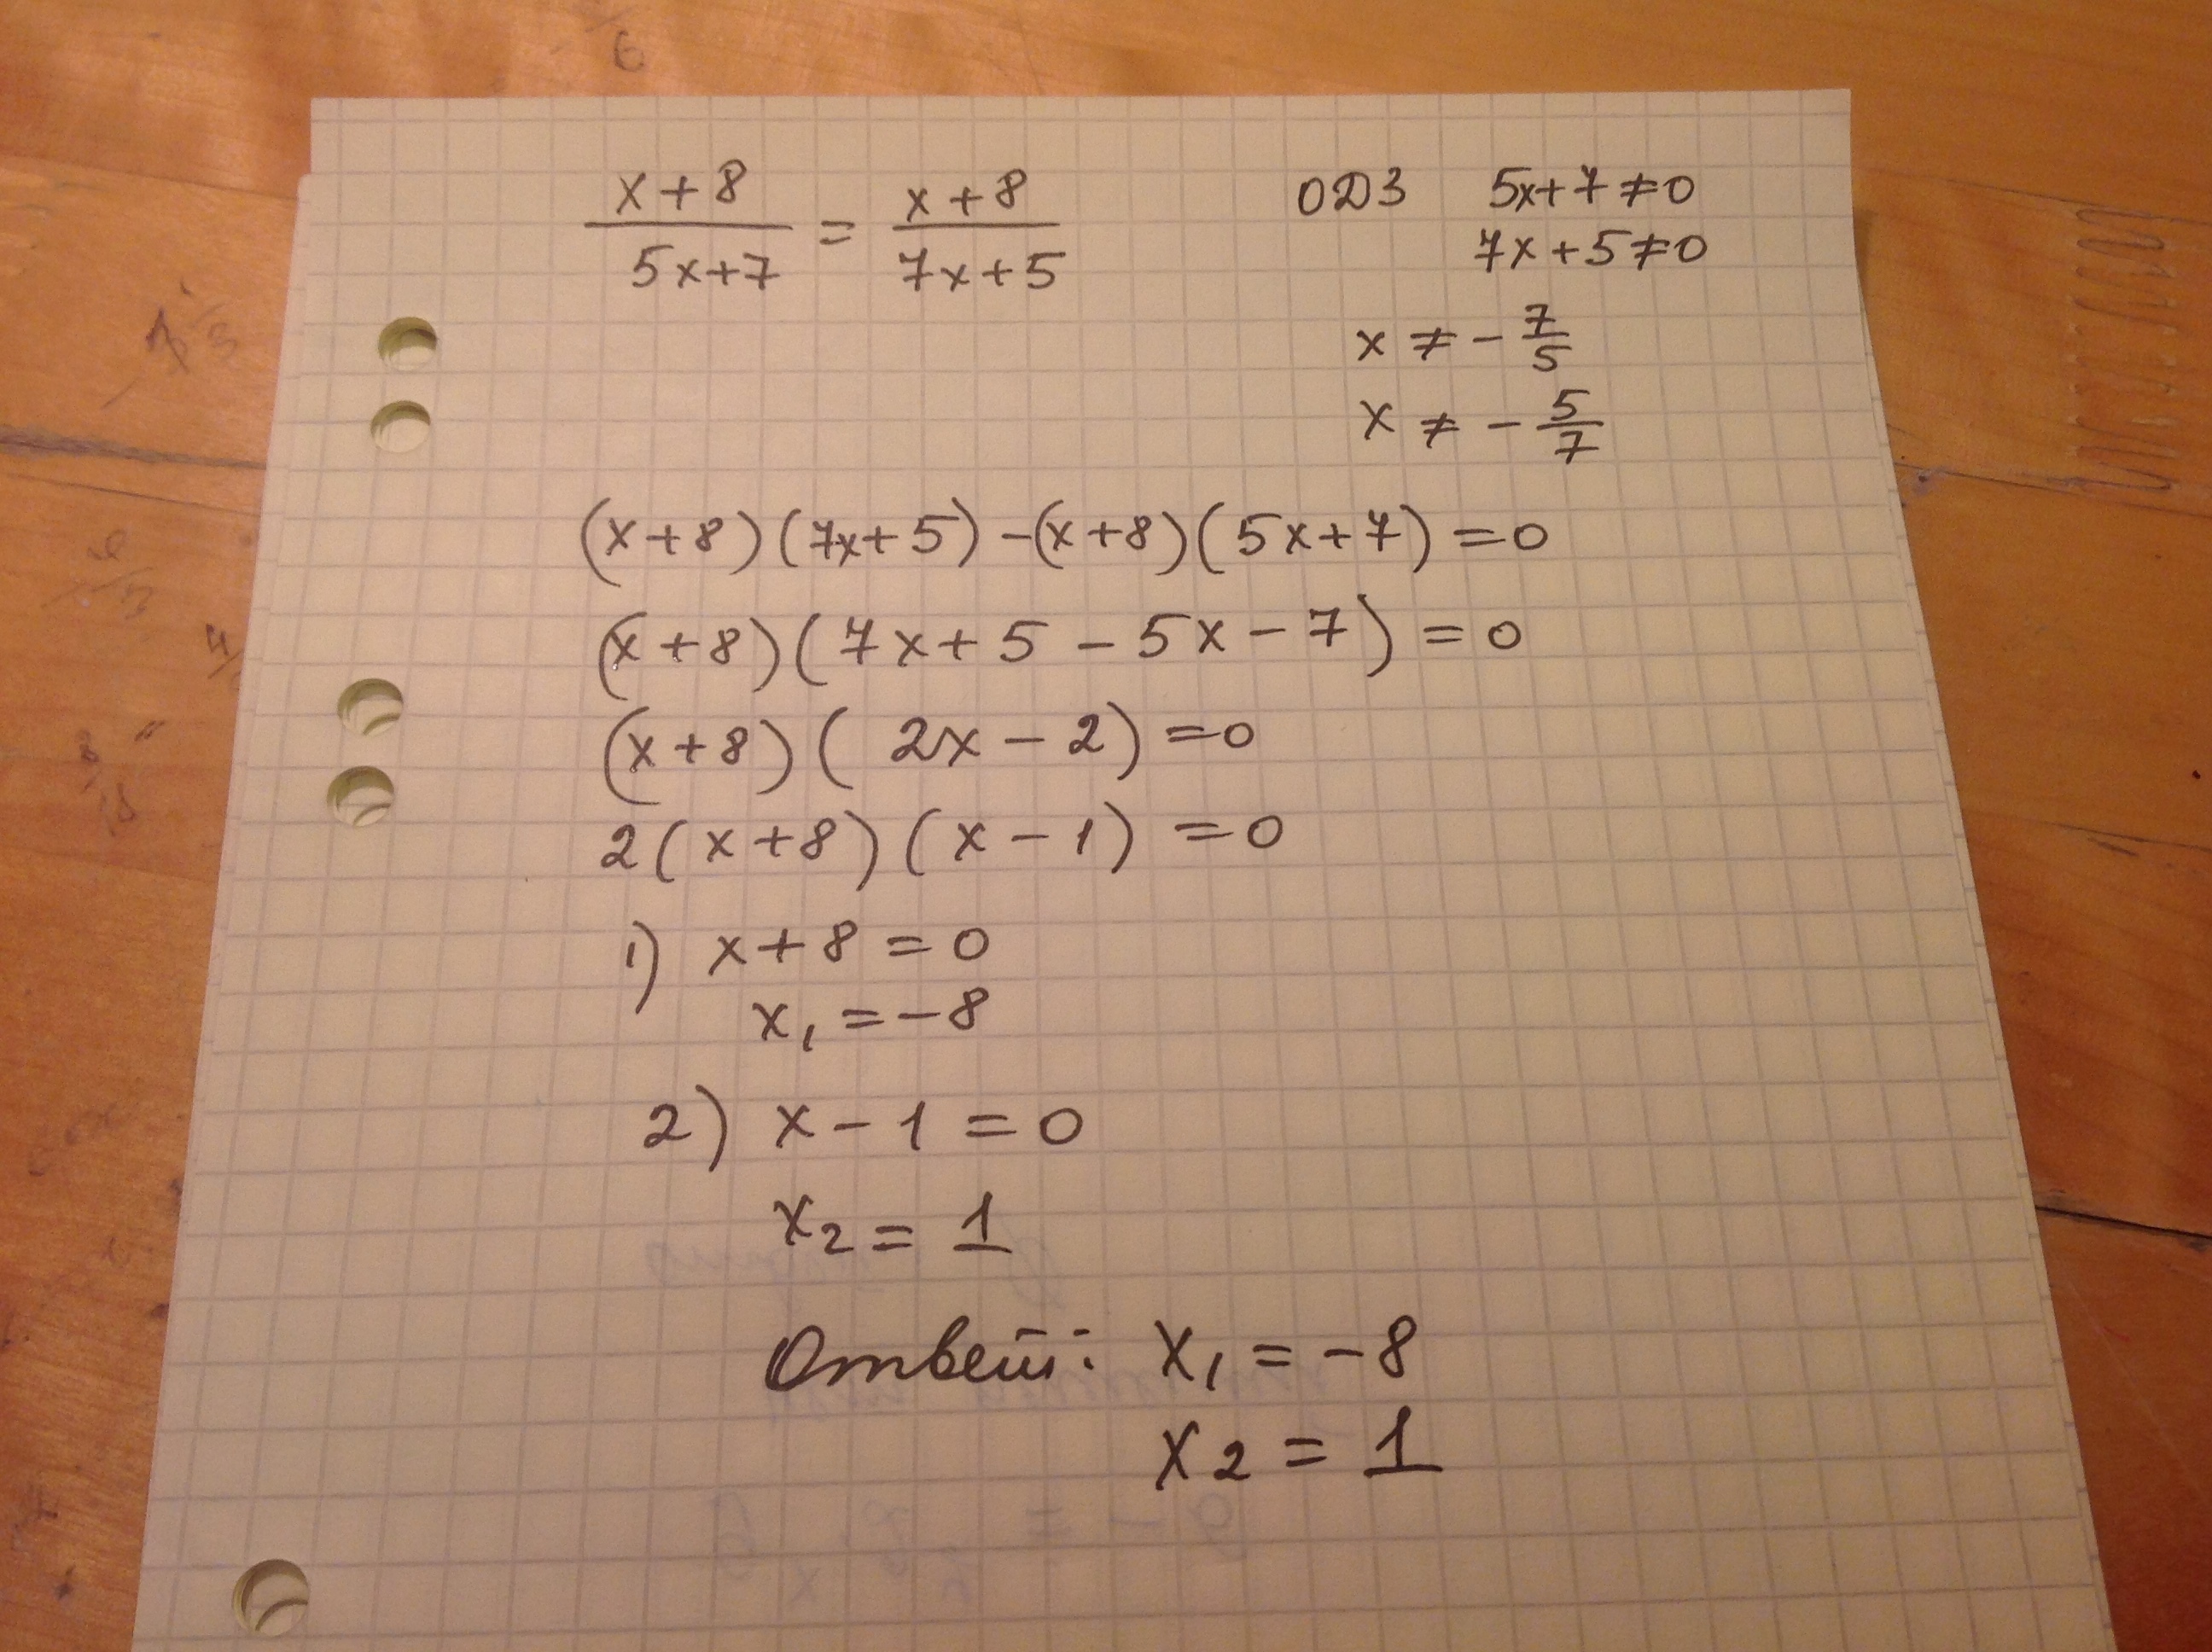 x + 8 / 5x+7 = x + 8 / 7x + 5
ОДЗ 5x+7 ≠ 0
7x + 5 ≠ 0
x ≠ - 7/5
x ≠ - 5/7
(x + 8) (7x + 5) - (x + 8) (5x + 7) = 0
(x + 8) (7x + 5 - 5x - 7) = 0
(x + 8) (2x - 2) = 0
2 (x + 8) (x - 1) = 0
1) x + 8 = 0
x₁ = -8
2) x - 1 = 0
x₂ = 1
Ответ: x₁ = -8
x₂ = 1